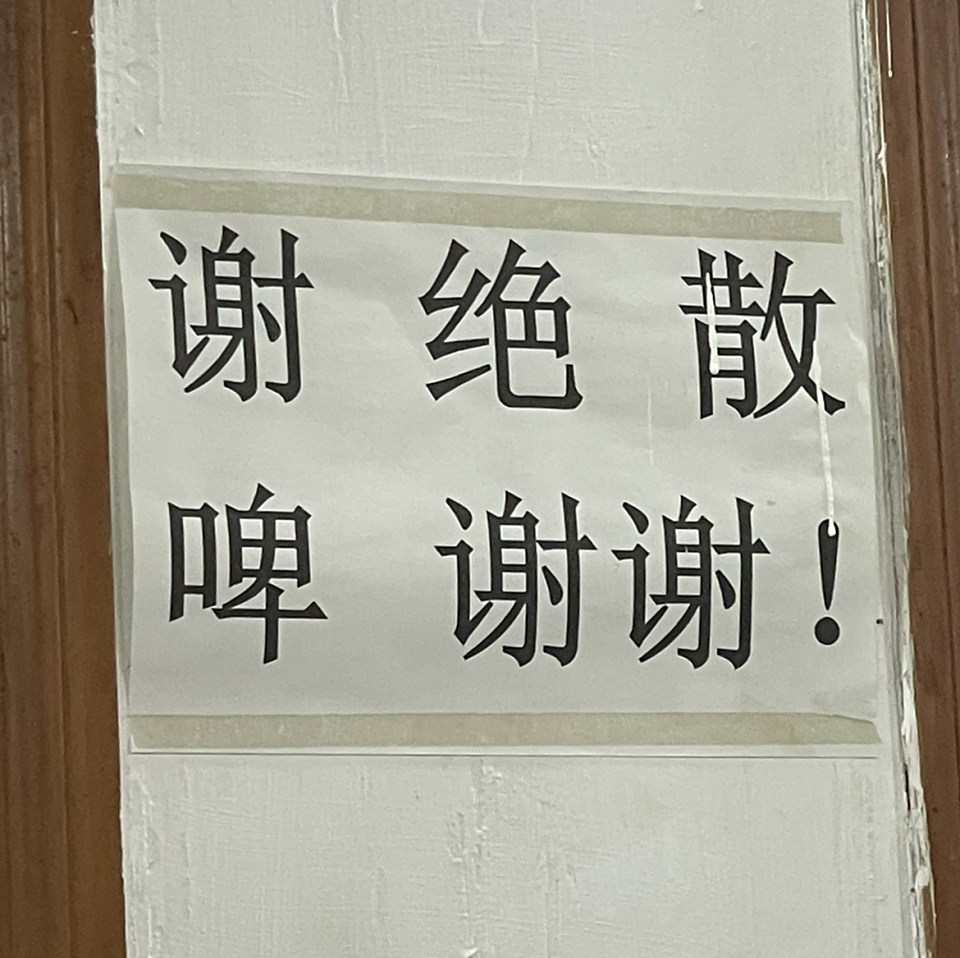 谢绝散
啤 谢谢！